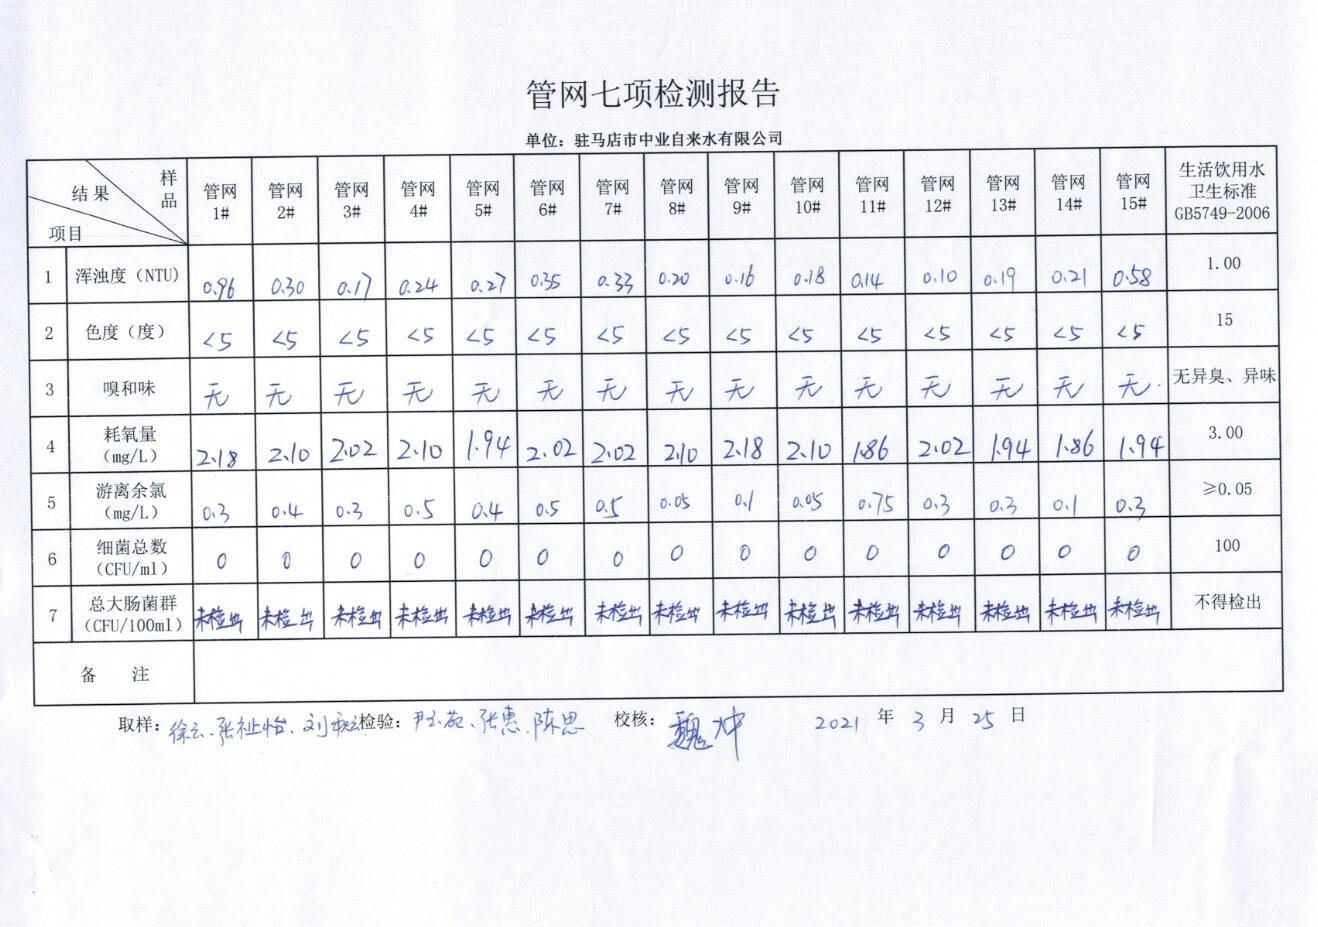 管网七项检测报告
单位：驻马店市中业自来水有限公司
结果 样品 项目 管网1# 管网2# 管网3# 管网4# 管网5# 管网6# 管网7# 管网8# 管网9# 管网10# 管网11# 管网12# 管网13# 管网14# 管网15# 生活饮用水卫生标准GB5749-2006
1 浑浊度（NTU) 0.96 0.30 0.17 0.24 0.27 0.35 0.33 0.20 0.16 0.18 0.14 0.10 0.19 0.21 0.58 1.00
2 色度（度） <5 <5 <5 <5 <5 <5 <5 <5 <5 <5 <5 <5 <5 <5 <5 15
3 嗅和味 无 无 无 无 无 无 无 无 无 无 无 无 无 无 无 无异臭、异味
4 耗氧量（mg/L） 2.18 2.10 2.02 2.10 1.94 2.02 2.02 2.10 2.18 2.10 1.86 2.02 1.94 1.86 1.94 3.00
5 游离余氯（mg/L） 0.3 0.4 0.3 0.5 0.4 0.5 0.5 0.05 0.1 0.05 0.75 0.3 0.3 0.1 0.3 ≥0.05
6 细菌总数（CFU/ml） 0 0 0 0 0 0 0 0 0 0 0 0 0 0 0 100
7 总大肠菌群（CFU/100ml） 未检出 未检出 未检出 未检出 未检出 未检出 未检出 未检出 未检出 未检出 未检出 未检出 未检出 未检出 未检出 不得检出
备 注
取样： 徐云、张祉怡、刘 检验： 尹玉苑、张惠、陈思 校核： 魏冲 2021 年 3 月 25 日